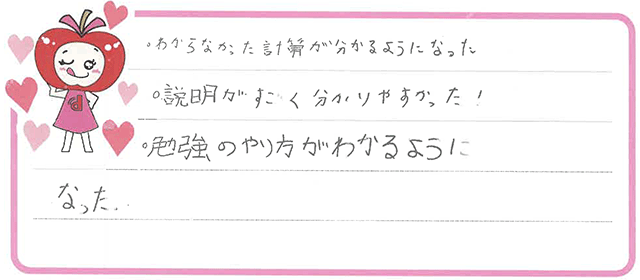 。わからなかった計算が分かるようになった
。説明がすごく分かりやすかった!
。勉強のやり方がわかるように
なった.
d